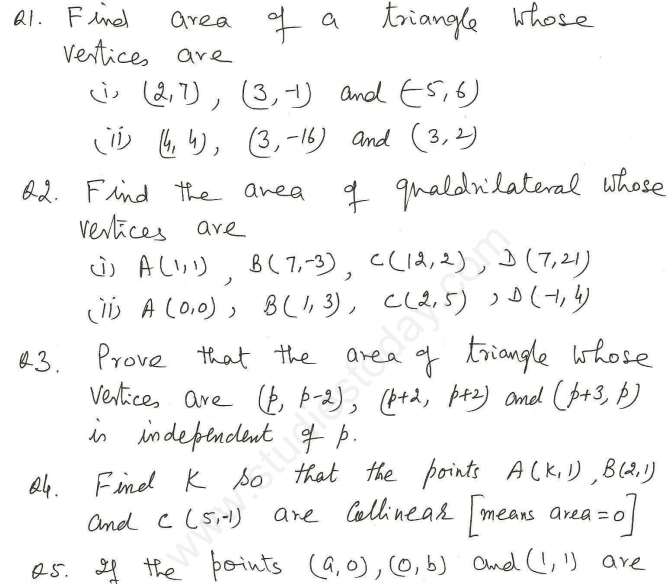 Q1. Find area of a triangle whose
vertices are
(i) (2,7), (3,-1) and (-5,6)
(ii) (4,4), (3,-16) and (3,2)
Q2. Find the area of qualdrilateral whose
vertices are
(i) A(1,1), B(7,-3), C(12,2), D(7,21)
(ii) A(0,0), B(1,3), C(2,5), D(-1,4)
Q3. Prove that the area of triangle whose
vertices are (p, p-2), (p+2, p+2) and (p+3, p)
is independent of p.
Q4. Find K so that the points A(K,1), B(2,1)
and C(5,-1) are Collinear [means area=0]
Q5. If the points (a,0), (0,b) and (1,1) are
www.studiestoday.com